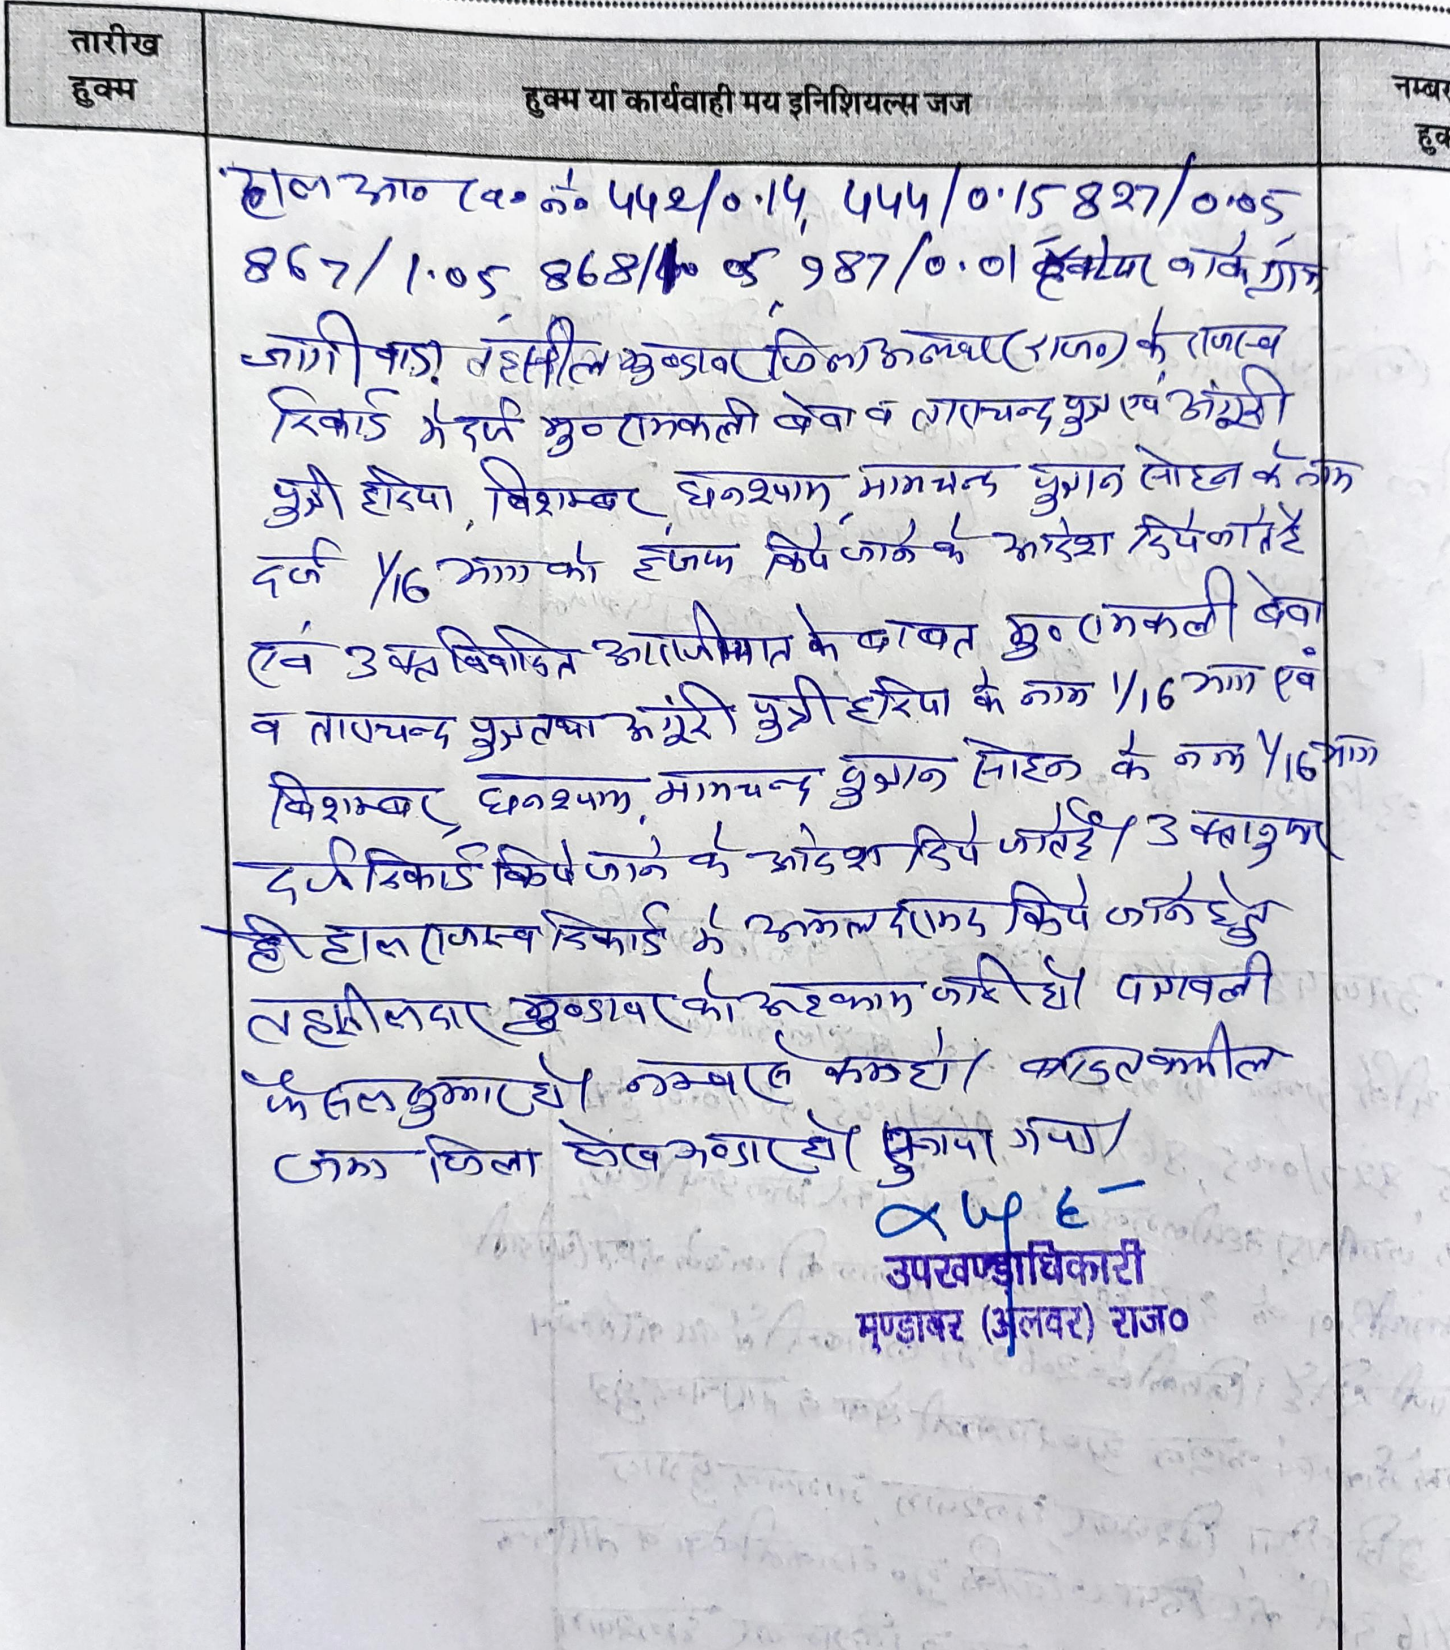 तारीख
हुक्म
हुक्म या कार्यवाही मय इनिशियल्स जज
नम्बर
हुक
हाल आ० ख० नं० 442/0.14, 444/0.15 827/0.05,
867/1.05, 868/ 05, 987/0.01 हैक्टेयर वाके ग्राम
जागीवाडा तहसील मुण्डावर जिला अलवर (राज०) के राजस्व
रिकार्ड मे दर्ज मु० रामकली बेवा व ताराचन्द पुत्र एवं अंगूरी
पुत्री हरिया, बिशम्बर, घनश्याम, मामचन्द पुत्रान सोहन के नाम
दर्ज 1/16 भाग को हजफ किये जाने के आदेश दिये जाते है
एवं उक्त विवादित आराजीयात के बाबत मु० रामकली बेवा
व ताराचन्द पुत्र तथा अंगूरी पुत्री हरिया के नाम 1/16 भाग एवं
बिशम्बर, घनश्याम, मामचन्द पुत्रान सोहन के नाम 1/16 भाग
दर्ज रिकार्ड किये जाने के आदेश दिये जाते है। उक्तानुसार
ही हाल राजस्व रिकार्ड मे अमल दरामद किये जाने हेतु
तहसीलदार मुण्डावर को अहकाम जारी हो। पत्रावली
फैसल शुमार हो। नम्बर से कम हो। तकमील
जमा जिला लेख भण्डार हो। सुनाया गया।
उपखण्डाधिकारी
मुण्डावर (अलवर) राज०